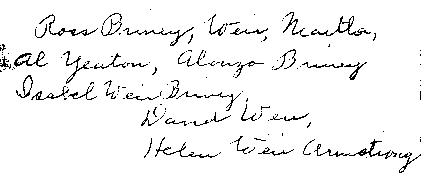 Ross Briney, Weir, Martha,
Al Yeaton, Alonzo Briney
Isabel Weir Briney,
David Weir,
Helen Weir Armstrong